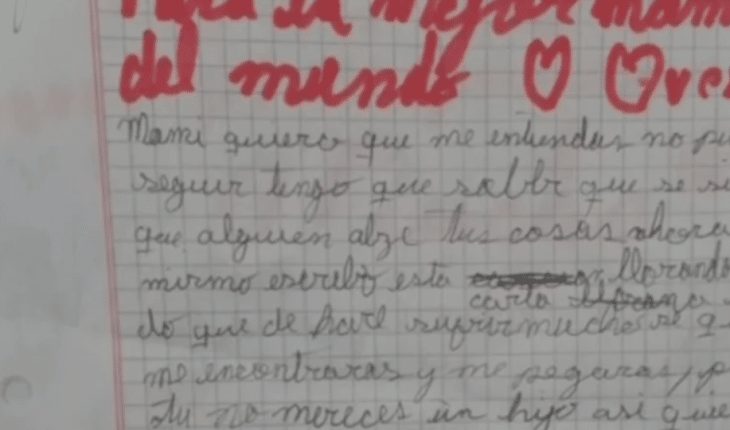 Para la mejor mam
del mundo
Mami quiero que me entiendas no pu
seguir tengo que saber que se si
que alguien alze tus cosas ahora
mismo escribo esta llorando
carta
do que de hare sufrir mucho se q
me encontraras y me pegaras, p
tu no mereces un hijo asi quie